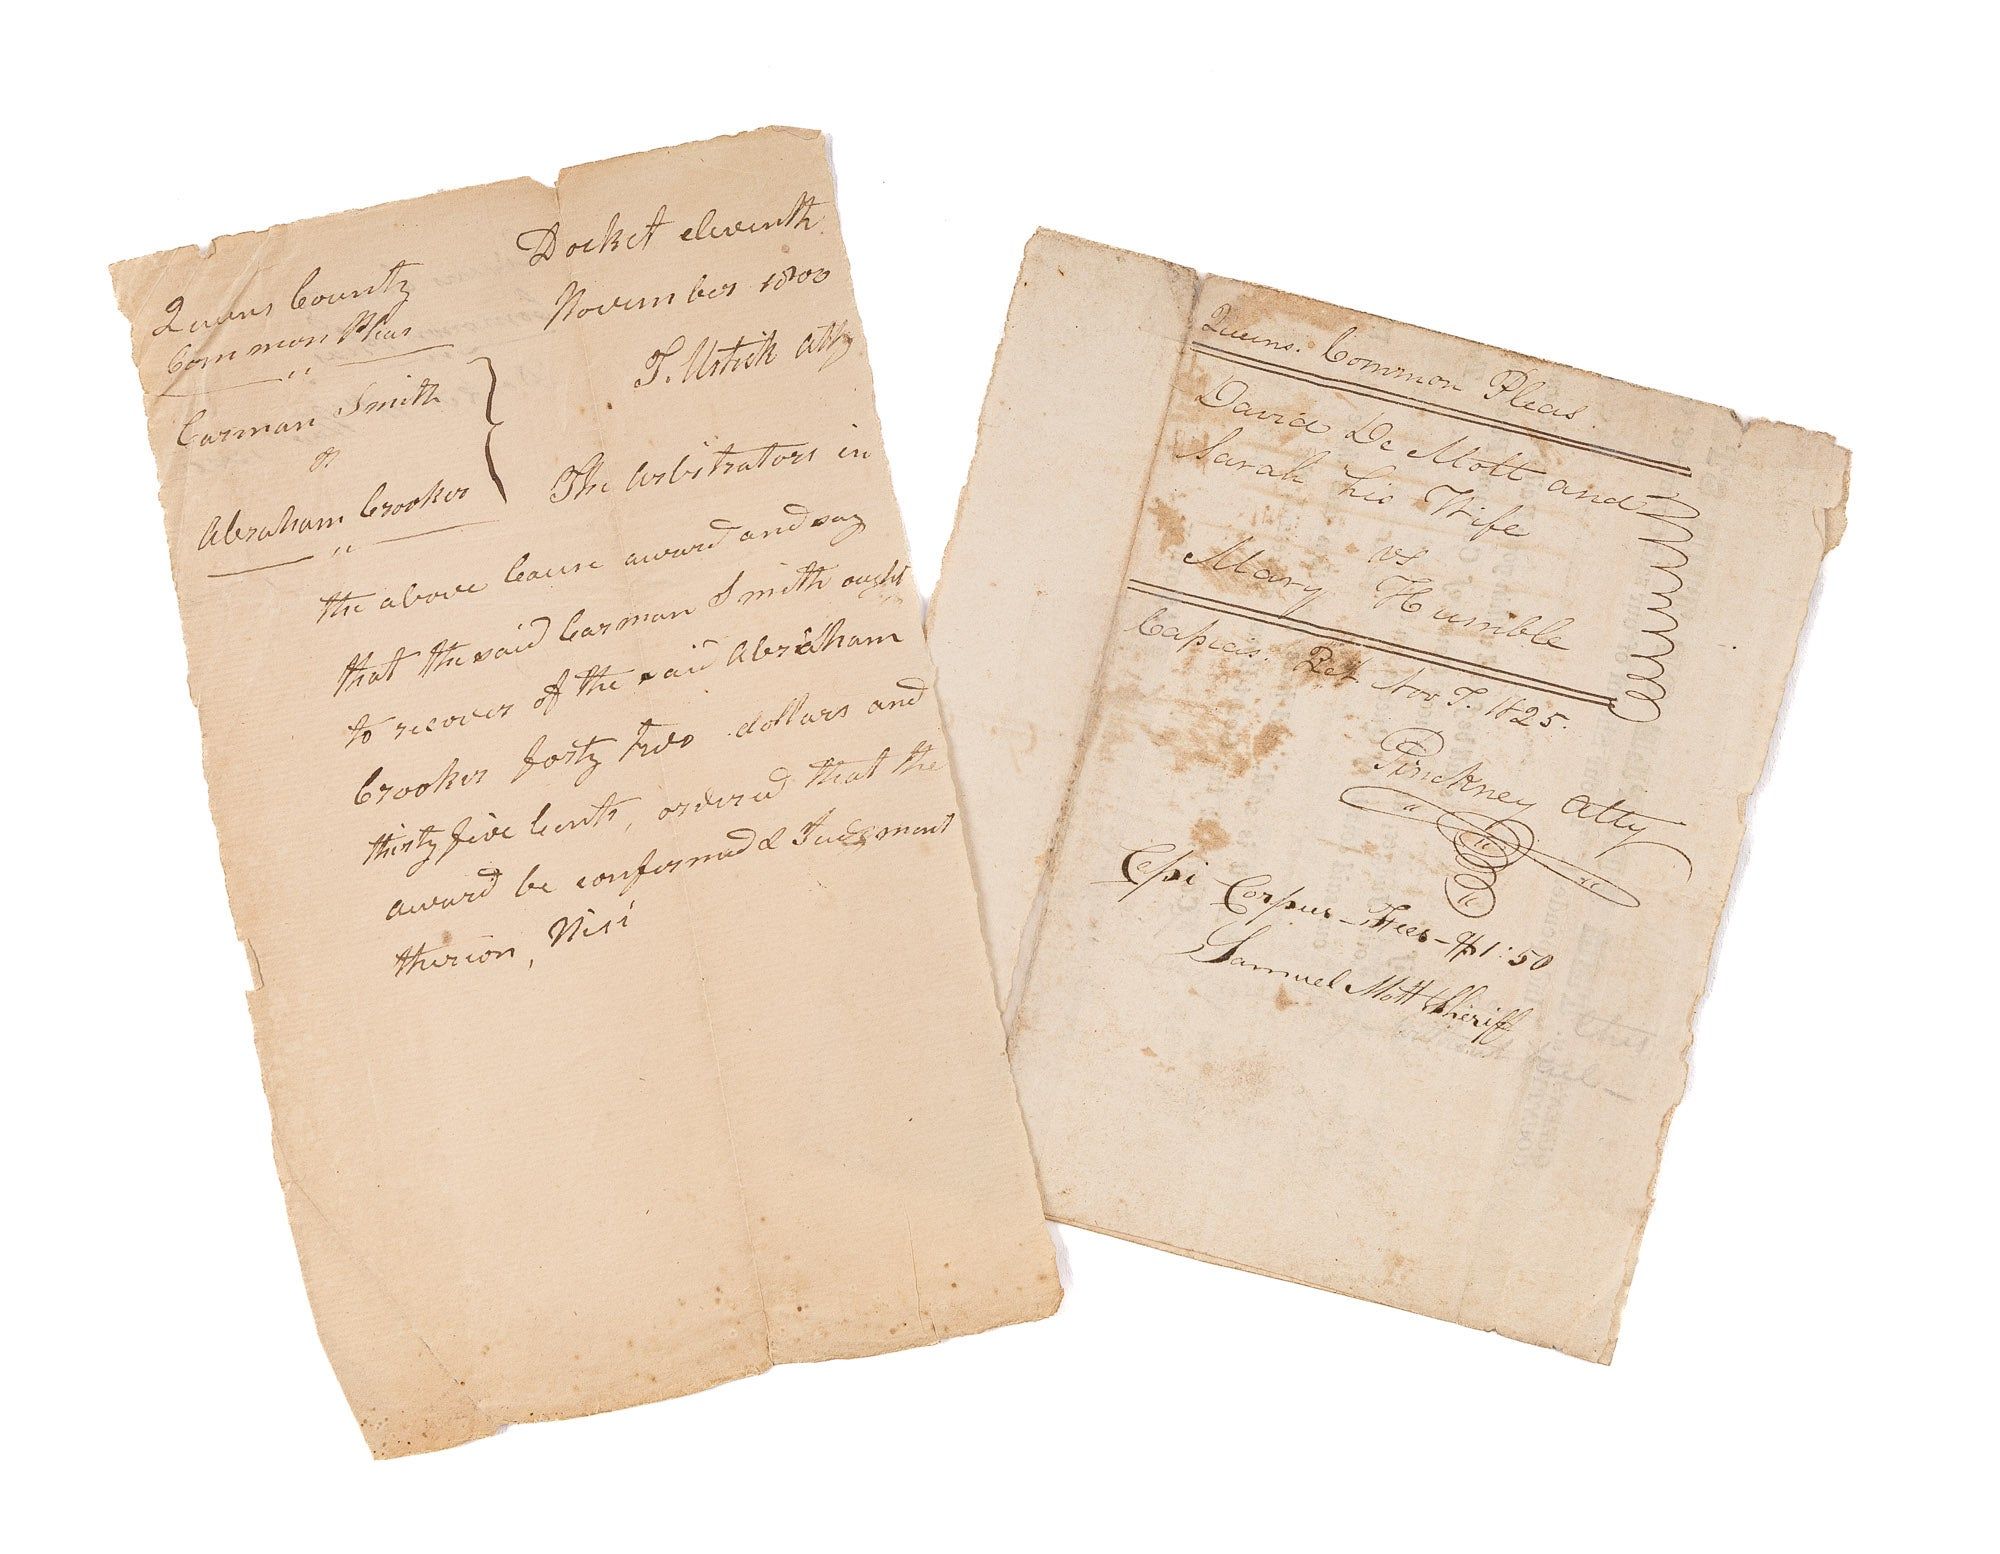 Queens County
Common Pleas
Carman Smith
vs
Abraham Crooker
Docket eleventh
November 1800
T. Ustick atty
The Arbitrators in
the above Cause award and say
that the said Carman Smith ought
to recover of the said Abraham
Crooker forty two dollars and
thirty five Cents, ordered that the
award be confirmed & Judgment
thereon, Nisi
Queens. Common Pleas.
David De Mott and
Sarah his Wife
vs
Mary Humble
Capias. Ret Nov T. 1825.
Pinckney atty
Cepi Corpus - Fees - $1:50
Samuel Mott Sheriff